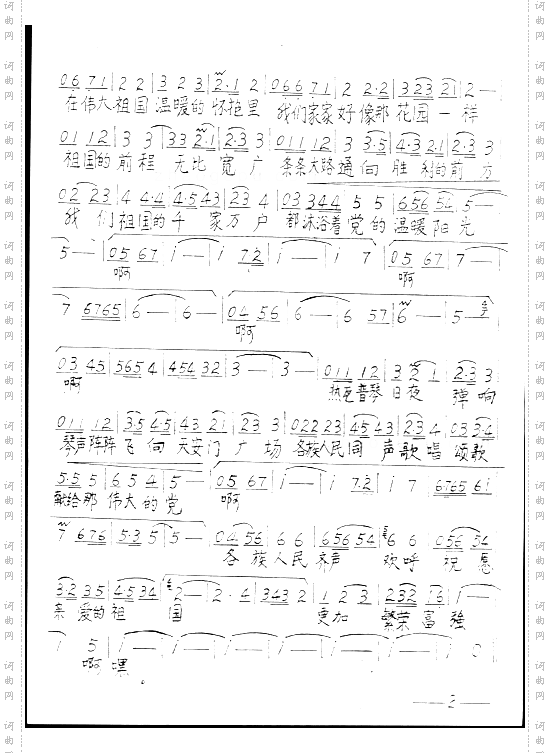 0 6 7 1 | 2 2 | 3 2 3 | 2· 1 2 | 0 6 6 7 1 | 2 2·2 | 3 23 21 | 2 — |
在伟大祖国 温暖的 怀抱里 我们家家好像那 花园一样
01 12 | 3 3 | 33 2·1 | 2·3 3 | 011 12 | 3 3·5 | 4·3 2·1 | 2·3 3
祖国的前程 无比宽广 条条大路通向胜利的前方
02 23 | 4 4·4 | 4·5 43 | 23 4 | 03 344 | 5 5 | 656 54 | 5 —
我们祖国的千家万户 都沐浴着党的温暖阳光
5 — | 05 67 | i — | i 72 | i — | i 7 | 05 67 | 7 —
啊 啊
7 6765 | 6 — | 6 — | 04 56 | 6 — | 6 57 | 6 — | 5 —
啊
03 45 | 565 4 | 454 32 | 3 — | 3 — | 011 12 | 3 2 1 | 2·3 3
啊 热瓦普琴日夜弹响
011 12 | 3·5 4·5 | 43 21 | 23 3 | 022 23 | 45 43 | 23 4 | 03 3·4
琴声阵阵飞向天安门广场 各族人民同声歌唱 颂歌
5·5 5 | 6 5 4 | 5 — | 05 67 | i — | i 7·2 | i 7 | 6765 61
献给那 伟大的党 啊
7 676 | 5·3 5 | 5 — | 04 56 | 6 6 | 656 54 | 6 6 | 056 54
各族人民齐声 欢呼 祝愿
3·2 35 | 4·5 34 | 2 — | 2· 4 | 343 2 | 1 2 3 | 232 16 | i —
亲爱的祖国 更加 繁荣富强
i 5 | i — | i — | i — | i — | i — | i — | i 0
啊嘿
— 2 —
词曲网